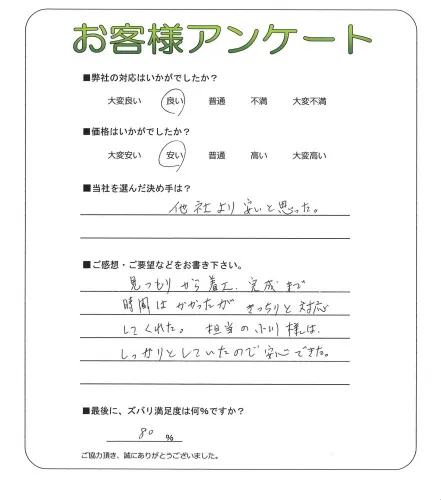 お客様アンケート
■弊社の対応はいかがでしたか?
大変良い 良い 普通 不満 大変不満
■価格はいかがでしたか?
大変安い 安い 普通 高い 大変高い
■当社を選んだ決め手は?
他社より安いと思った。
■ご感想・ご要望などをお書き下さい。
見つもりから着工、完成まで
時間はかかったが きっちりと対応
してくれた。 担当の小川様は、
しっかりとしていたので安心できた。
■最後に、ズバリ満足度は何%ですか?
80 %
ご協力頂き、誠にありがとうございました。